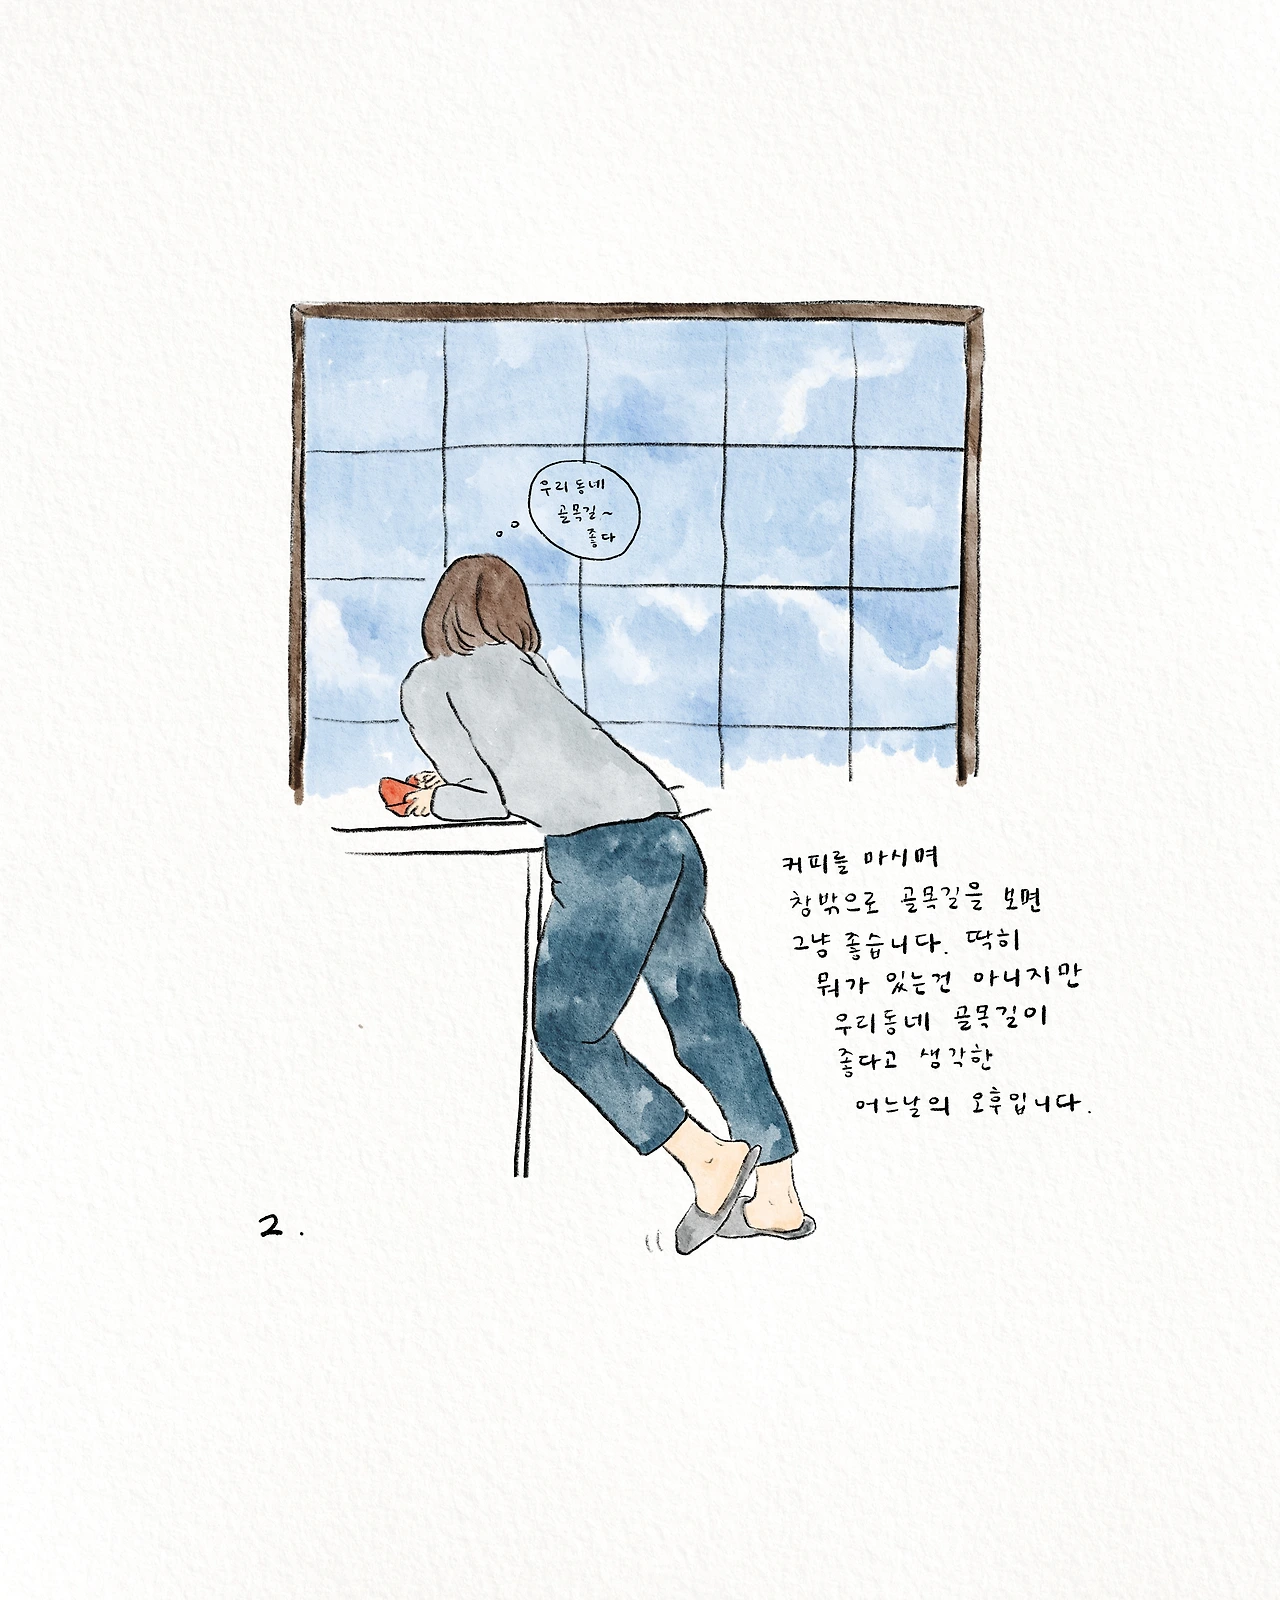 우리동네
골목길~
좋다
커피를 마시며
창밖으로 골목길을 보면
그냥 좋습니다. 딱히
뭐가 있는건 아니지만
우리동네 골목길이
좋다고 생각한
어느날의 오후입니다.
2.